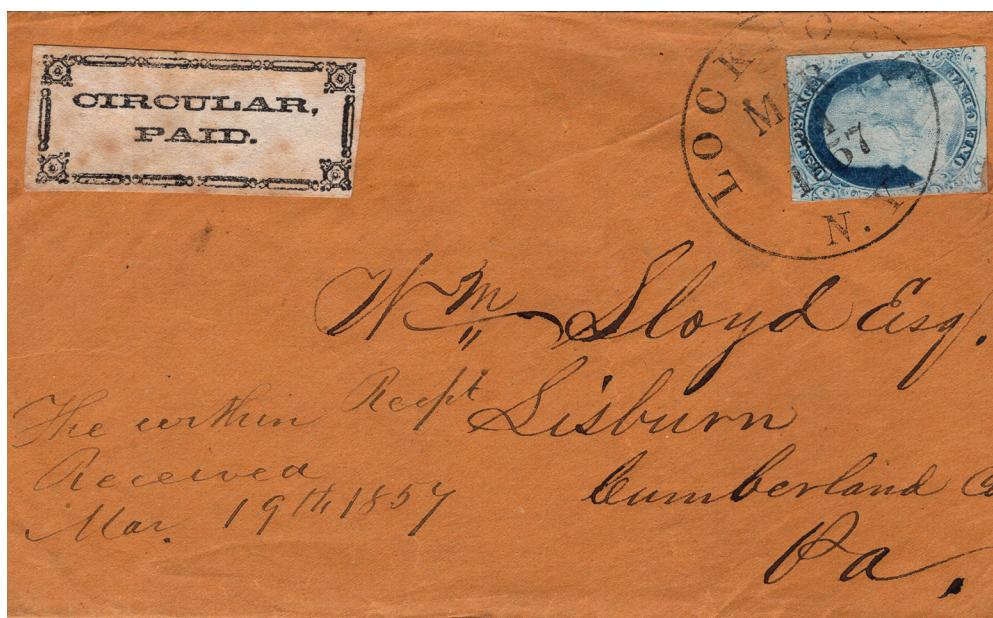 CIRCULAR,
PAID.
LOCKPORT
MAR
57
N.Y.
U.S. POSTAGE
ONE CENT
Wm Lloyd Esq.
Lisburn
Cumberland Co
Pa.
The within Recpt
Received
Mar. 19th 1857